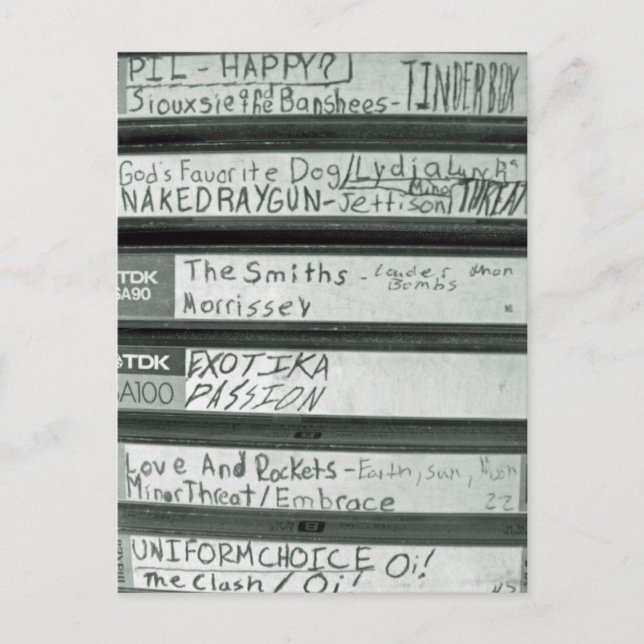 PIL - HAPPY?
Siouxsie and the Banshees - TINDERBOX
God's Favorite Dog / Lydia Lunch
NAKED RAYGUN - Jettison / Minor THREAT
TDK
SA90
The Smiths - Louder than Bombs
Morrissey
TDK
SA100
EXOTIKA
PASSION
B
Love And Rockets - Earth, Sun, Moon
Minor Threat / Embrace
22
B
UNIFORM CHOICE Oi!
The Clash / Oi!